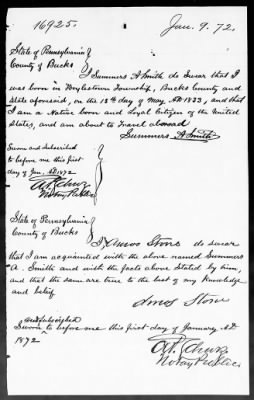 16925.
Jan. 9. 72.
State of Pennsylvania }
County of Bucks }
I Summers A Smith do swear that I
was born in Doylestown Township, Bucks County and
state aforesaid, on the 15th day of May, AD 1833, and that
I am a Native born and loyal Citizen of the United
States, and am about to travel abroad
Summers A Smith
Sworn and Subscribed
to before me this first
day of Jan. AD 1872
Notary Public
State of Pennsylvania }
County of Bucks }
I, Amos Stone do swear
that I am acquainted with the above named Summers
A. Smith and with the facts above stated by him,
and that the same are true to the best of my Knowledge
and belief.
Amos Stone
and subscribed
Sworn to before me this first day of January AD
1872
Notary Public